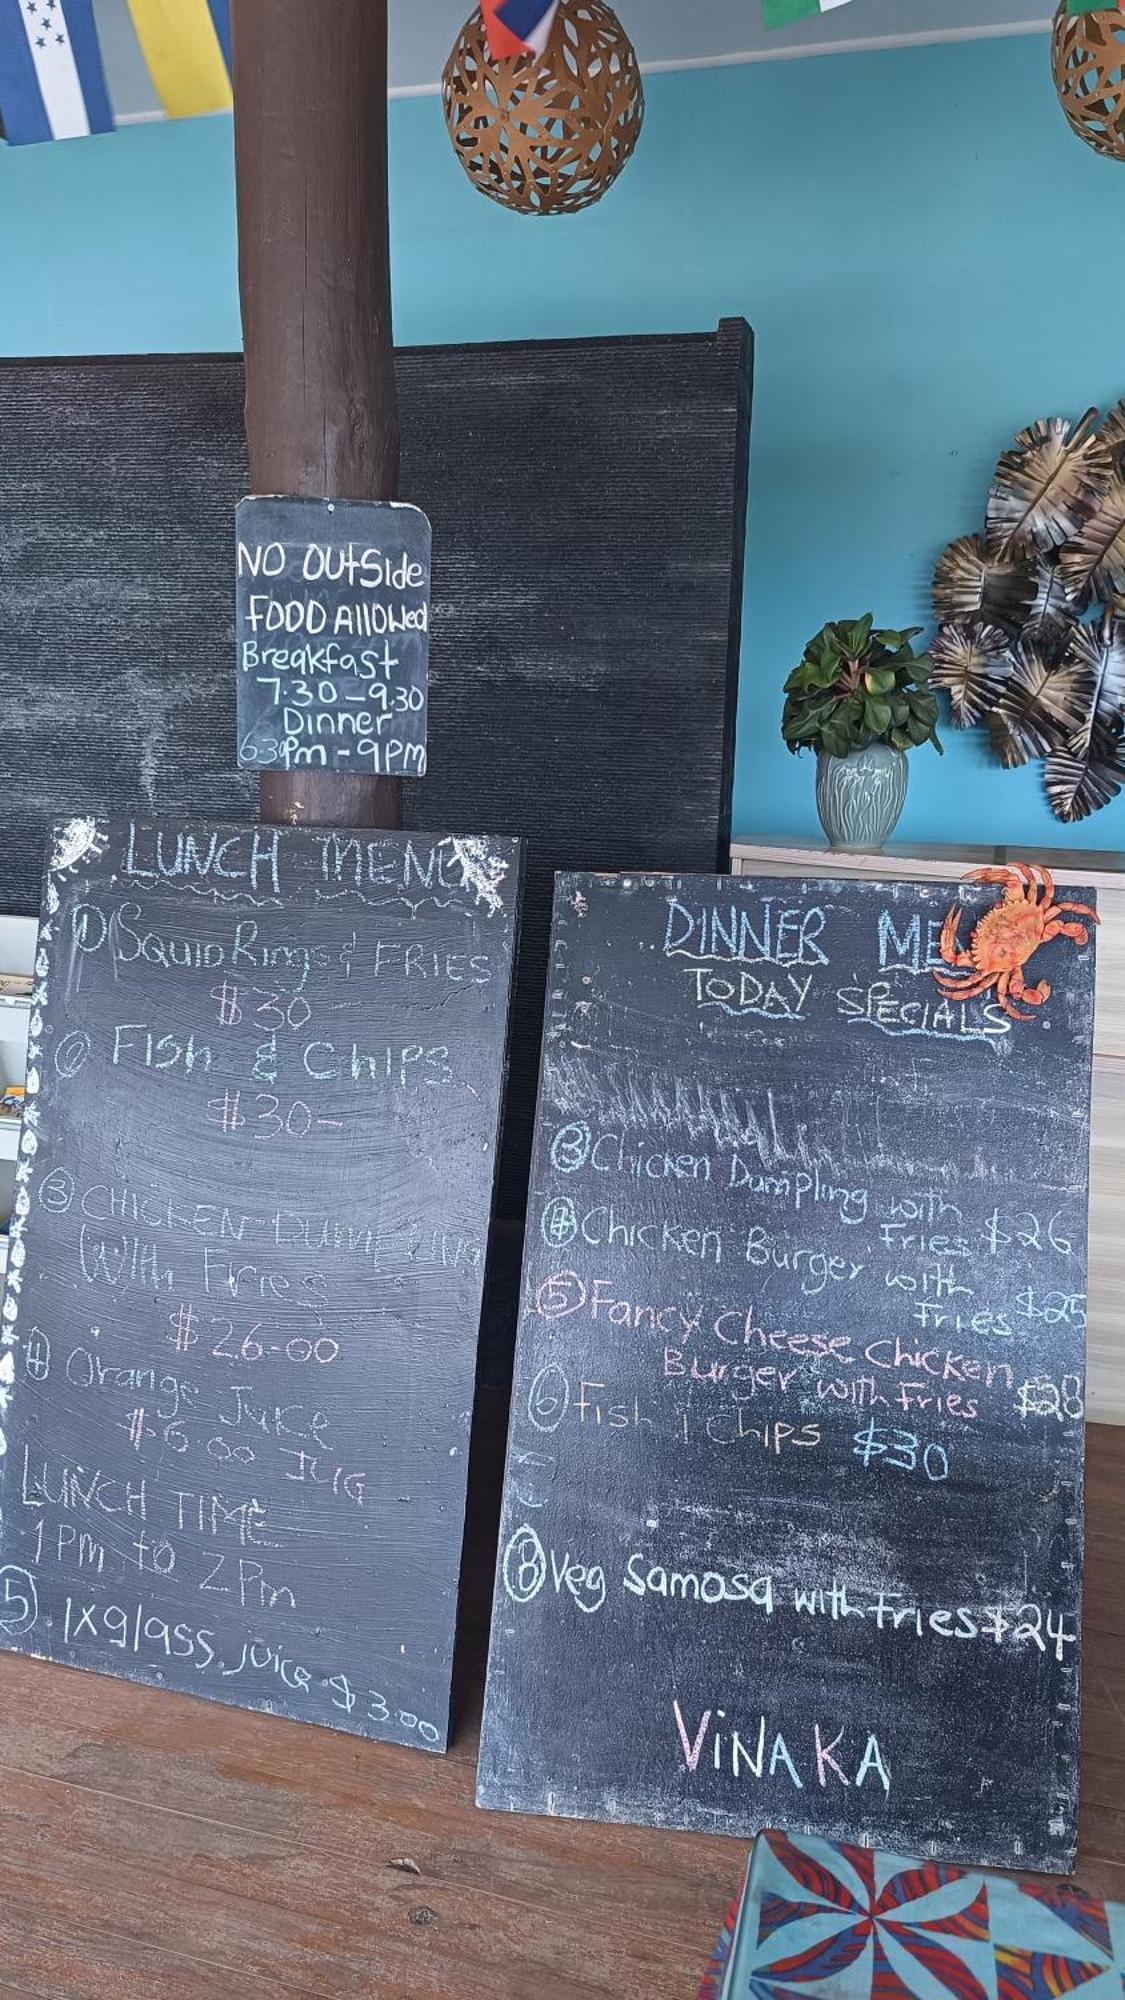 NO OUtSide
FOOD AllOWed
Breakfast
7.30 - 9.30
Dinner
6-30Pm - 9PM
LUNCH MENU
① SQUID Rings & FRIES
$30
② Fish & Chips
$30-
③ CHICKEN DUMPLING
With Fries
$26-00
④ Orange Juice
$6.00 JUG
LUNCH TIME
1 Pm to 2 Pm
⑤. 1xglass juice $3.00
DINNER ME
TODAY SPECIALS
③ Chicken Dumpling with
Fries $26
④ Chicken Burger with
Fries $25
⑤ Fancy Cheese Chicken
Burger with Fries $28
⑥ Fish & Chips $30
⑧ Veg Samosa with Fries $24
ViNAKA